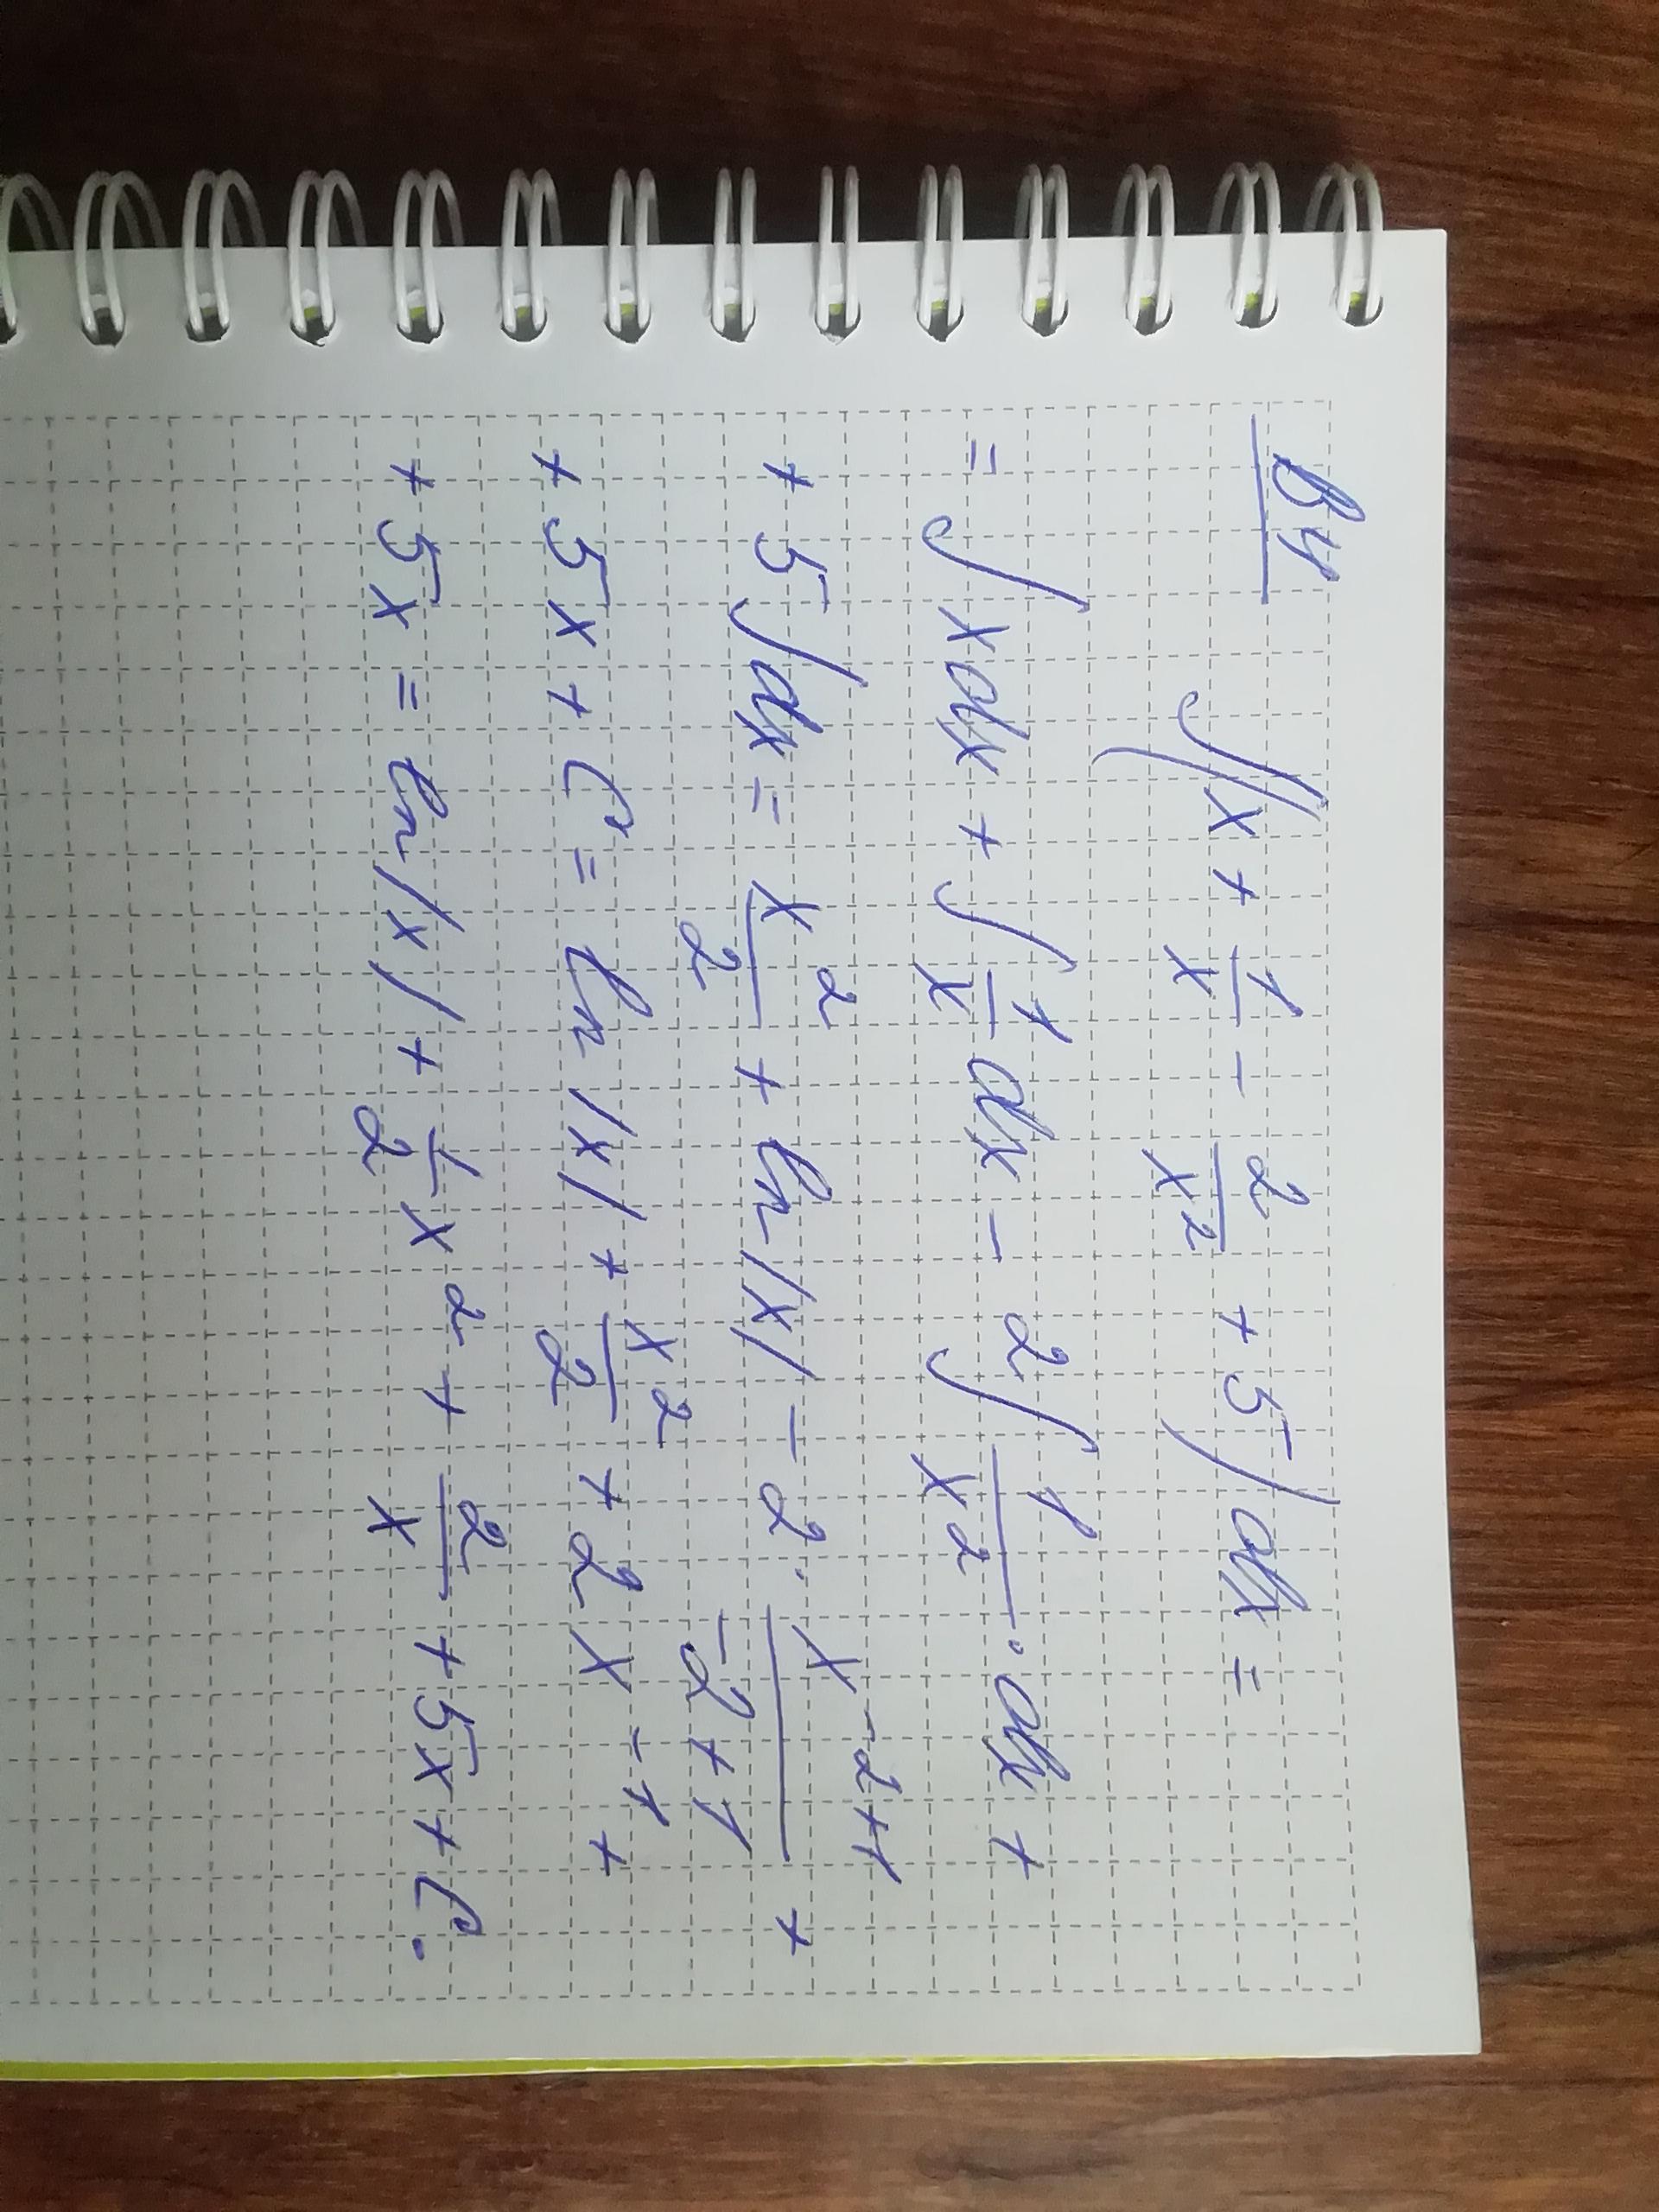 В4 ∫(x + 1/x - 2/x² + 5) dx =
= ∫xdx + ∫1/x dx - 2∫1/x² · dx +
+ 5∫dx = x²/2 + ln|x| - 2 · x⁻²⁺¹/-2+1 +
+ 5x + C = ln|x| + x²/2 + 2x⁻¹ +
+ 5x = ln|x| + 1/2 x² + 2/x + 5x + C.